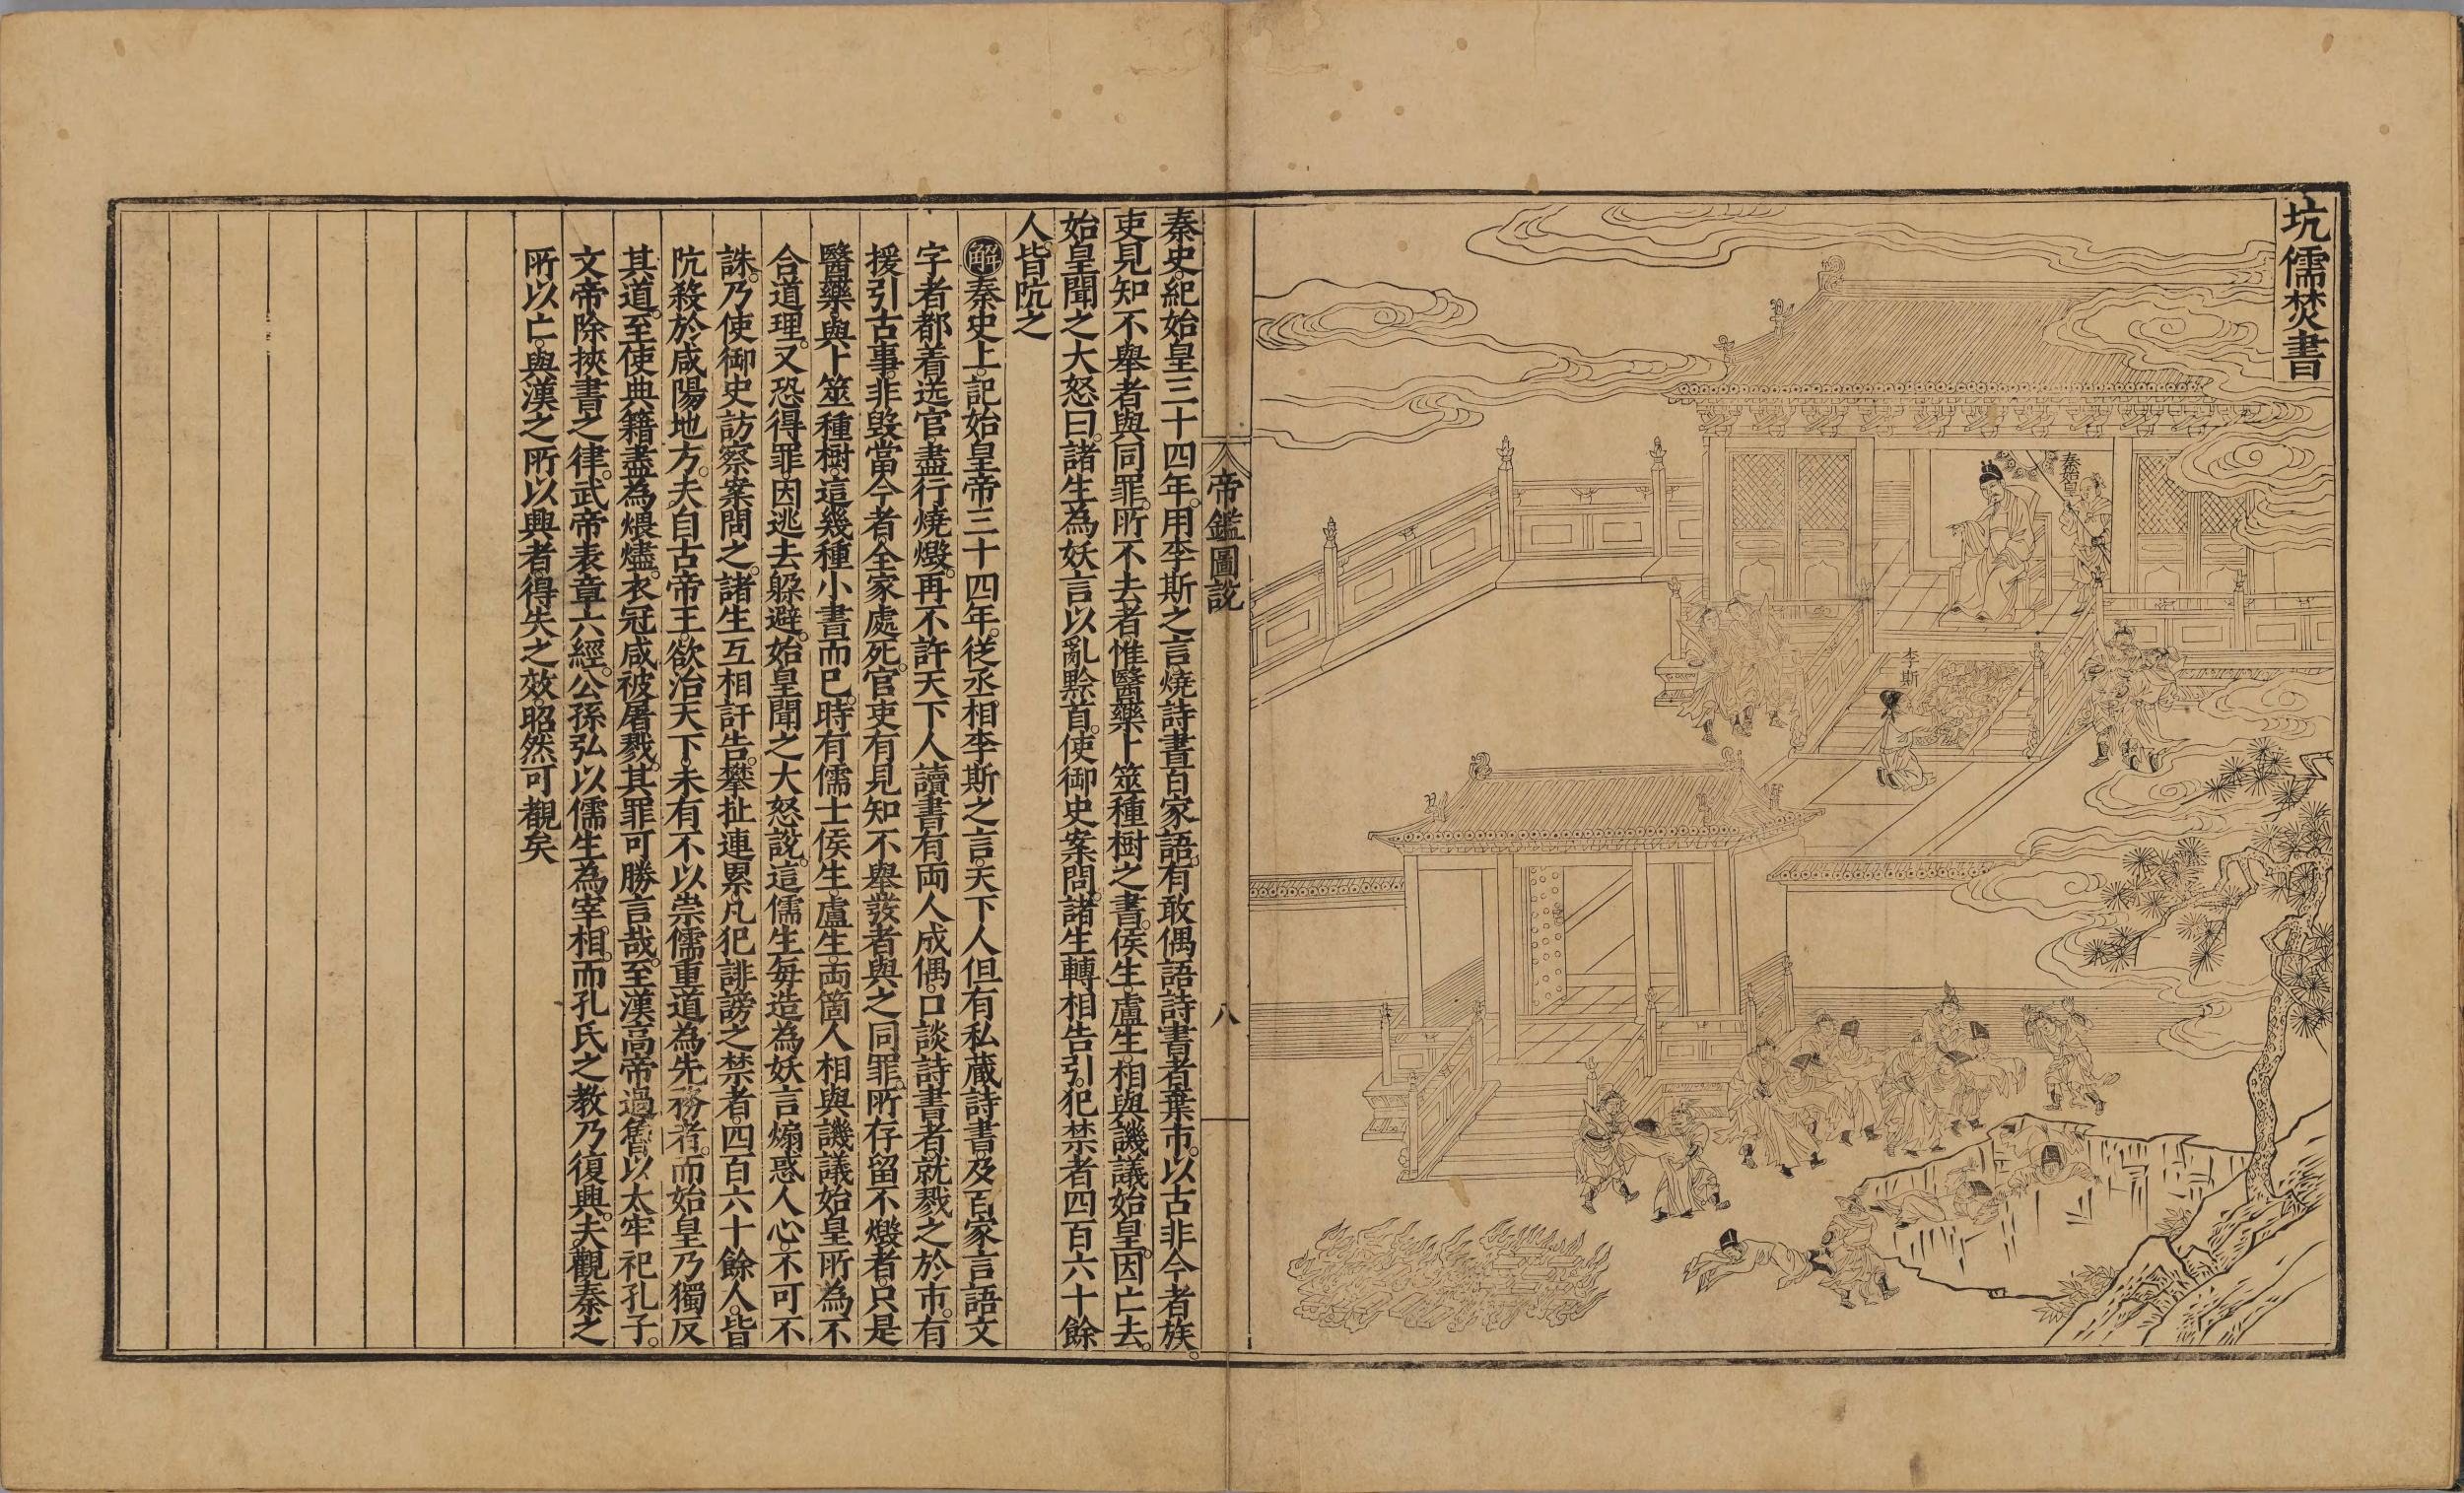 坑儒焚書
秦始皇
李斯
帝鑑圖說
八
秦史紀始皇三十四年。用李斯之言。燒詩書百家語。有敢偶語詩書者棄市。以古非今者族。
吏見知不舉者與同罪。所不去者惟醫藥卜筮種樹之書。侯生。盧生。相與譏議始皇。因亡去。
始皇聞之大怒曰。諸生為妖言以亂黔首。使御史案問。諸生轉相告引。犯禁者四百六十餘
人。皆阬之
解秦史上。記始皇帝三十四年。從丞相李斯之言。天下人但有私藏詩書及百家言語文
字者。都着送官。盡行燒燬。再不許天下人讀書。有兩人成偶。口談詩書者。就戮之於市。有
援引古事。非毀當今者。全家處死。官吏有見知不舉發者。與之同罪。所存留不燬者。只是
醫藥與卜筮種樹。這幾種小書而已。時有儒士侯生。盧生。兩箇人相與譏議始皇所為不
合道理。又恐得罪。因逃去躲避。始皇聞之大怒說。這儒生每造為妖言。煽惑人心。不可不
誅。乃使御史訪察案問之。諸生互相訐告。攀扯連累。凡犯誹謗之禁者。四百六十餘人。皆
阬殺於咸陽地方。夫自古帝王。欲治天下。未有不以崇儒重道為先務者。而始皇乃獨反
其道。至使典籍盡為煨燼。衣冠咸被屠戮。其罪可勝言哉。至漢高帝過魯。以太牢祀孔子。
文帝除挾書之律。武帝表章六經。公孫弘以儒生為宰相。而孔氏之教乃復興。夫觀秦之
所以亡。與漢之所以興者。得失之效。昭然可觀矣